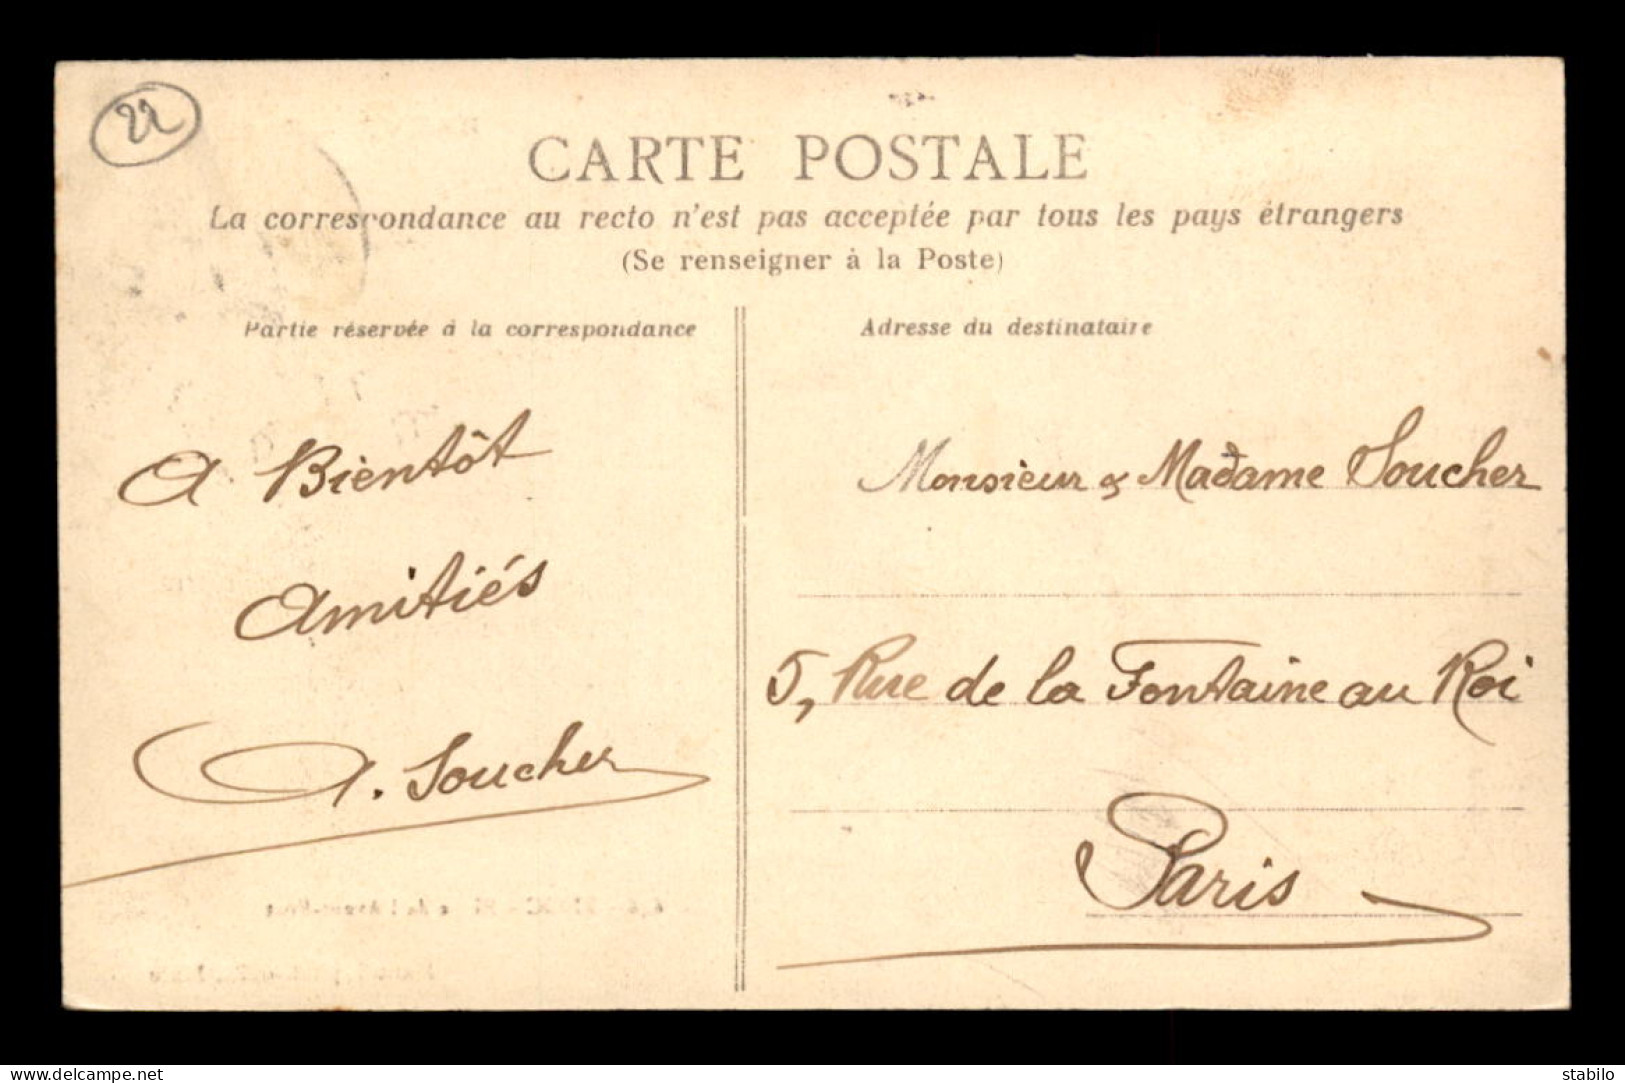 22
CARTE POSTALE
La correspondance au recto n'est pas acceptée par tous les pays étrangers
(Se renseigner à la Poste)
Partie réservée à la correspondance
Adresse du destinataire
A Bientôt
Amitiés
A. Soucher
Monsieur & Madame Soucher
5, Rue de la Fontaine au Roi
Paris
www.delcampe.net
stabilo